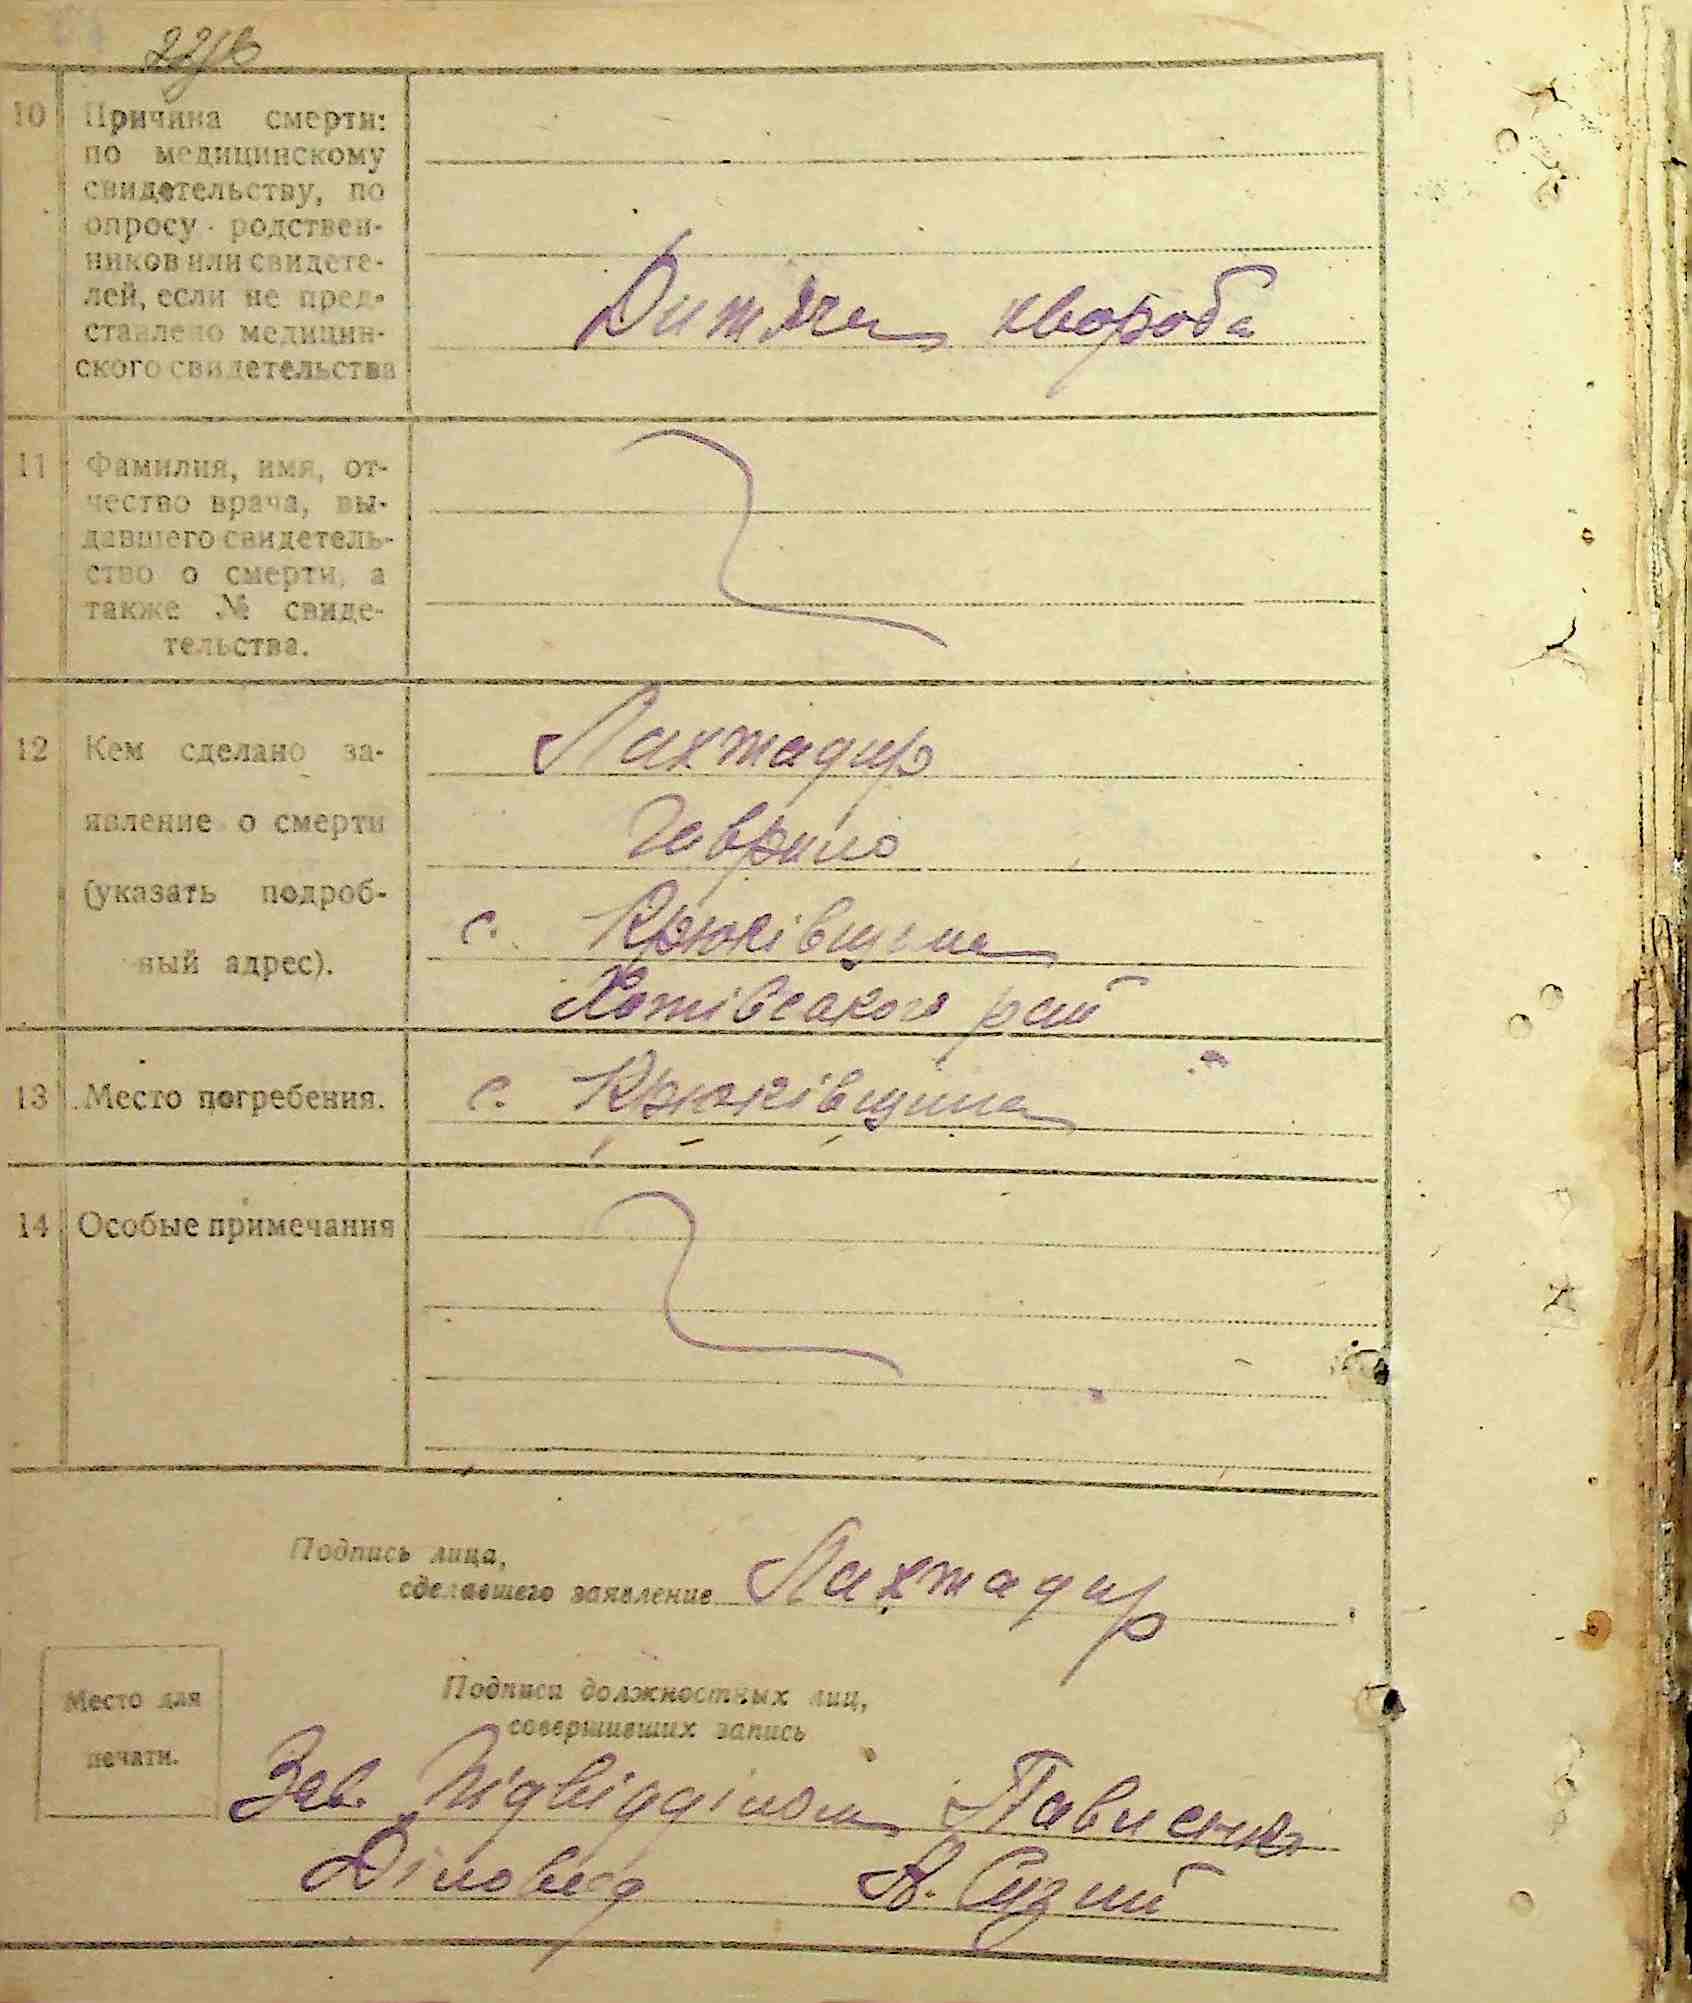 10
Причина смерти:
по медицинскому
свидетельству, по
опросу родствен-
ников или свидете-
лей, если не пред-
ставлено медицин-
ского свидетельства
Дитяча хвороба
11
Фамилия, имя, от-
чество врача, вы-
давшего свидетель-
ство о смерти, а
также № свиде-
тельства.
12
Кем сделано за-
явление о смерти
(указать подроб-
ный адрес).
Лахтадир
Гаврило
с. Крюківщина
Хотівського рай
13
Место погребения.
с. Крюківщина
14
Особые примечания
Подпись лица,
сделавшего заявление Лахтадир
Место для
печати.
Подписи должностных лиц,
совершивших запись
Зав. Підвідділом Павленко
Діловод